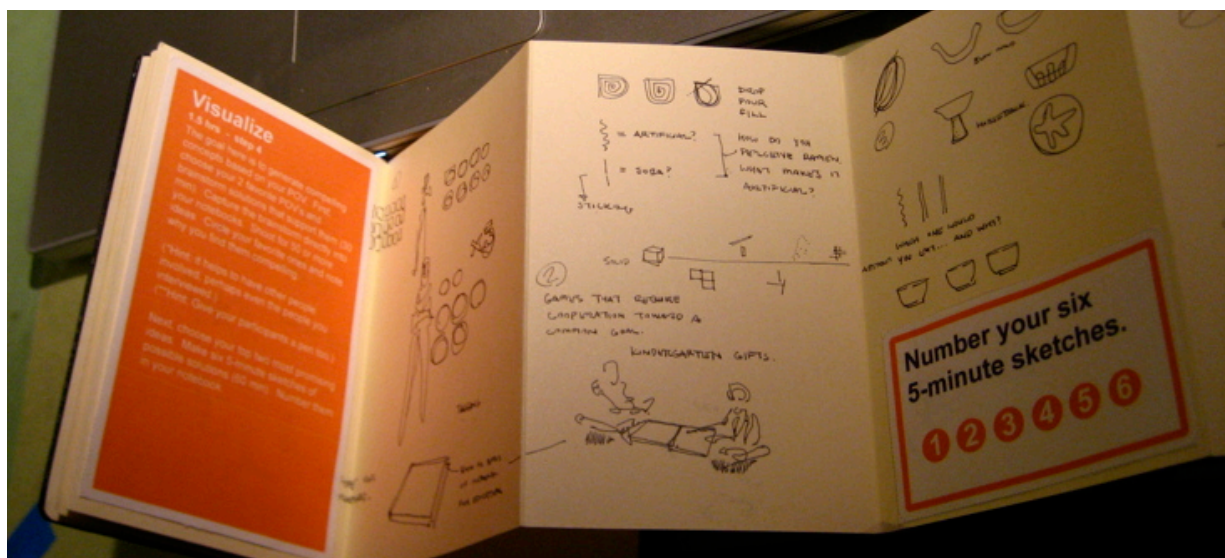 Visualize
1.5 hrs - step 4
The goal here is to generate compelling
concepts based on your POV. First,
choose your 2 favorite POVs and
brainstorm solutions that support them (30
min). Capture the brainstorm directly into
your notebooks. Shoot for 50 or more
ideas. Circle your favorite ones and note
why you find them compelling.
(*Hint: It helps to have other people
involved, perhaps even the people you
interviewed.)
(**Hint: Give your participants a pen too.)
Next, choose your top two most promising
ideas. Make six 5-minute sketches of
possible solutions (60 min). Number them
in your notebook.
DROP
POUR
FILL
= ARTIFICIAL?
= SOBA?
STICKING
HOW DO YOU
PERCEIVE RAMEN.
WHAT MAKES IT
ARTIFICIAL?
SOLID
2
GAMES THAT REQUIRE
COOPERATION TOWARD A
COMMON GOAL.
KINDERGARTEN GIFTS.
WHICH ONE WOULD
YOU EAT... AND WHY?
Number your six
5-minute sketches.
1 2 3 4 5 6